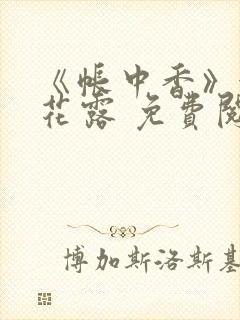 《帐中香》
花露 免費閱
博加斯洛斯基